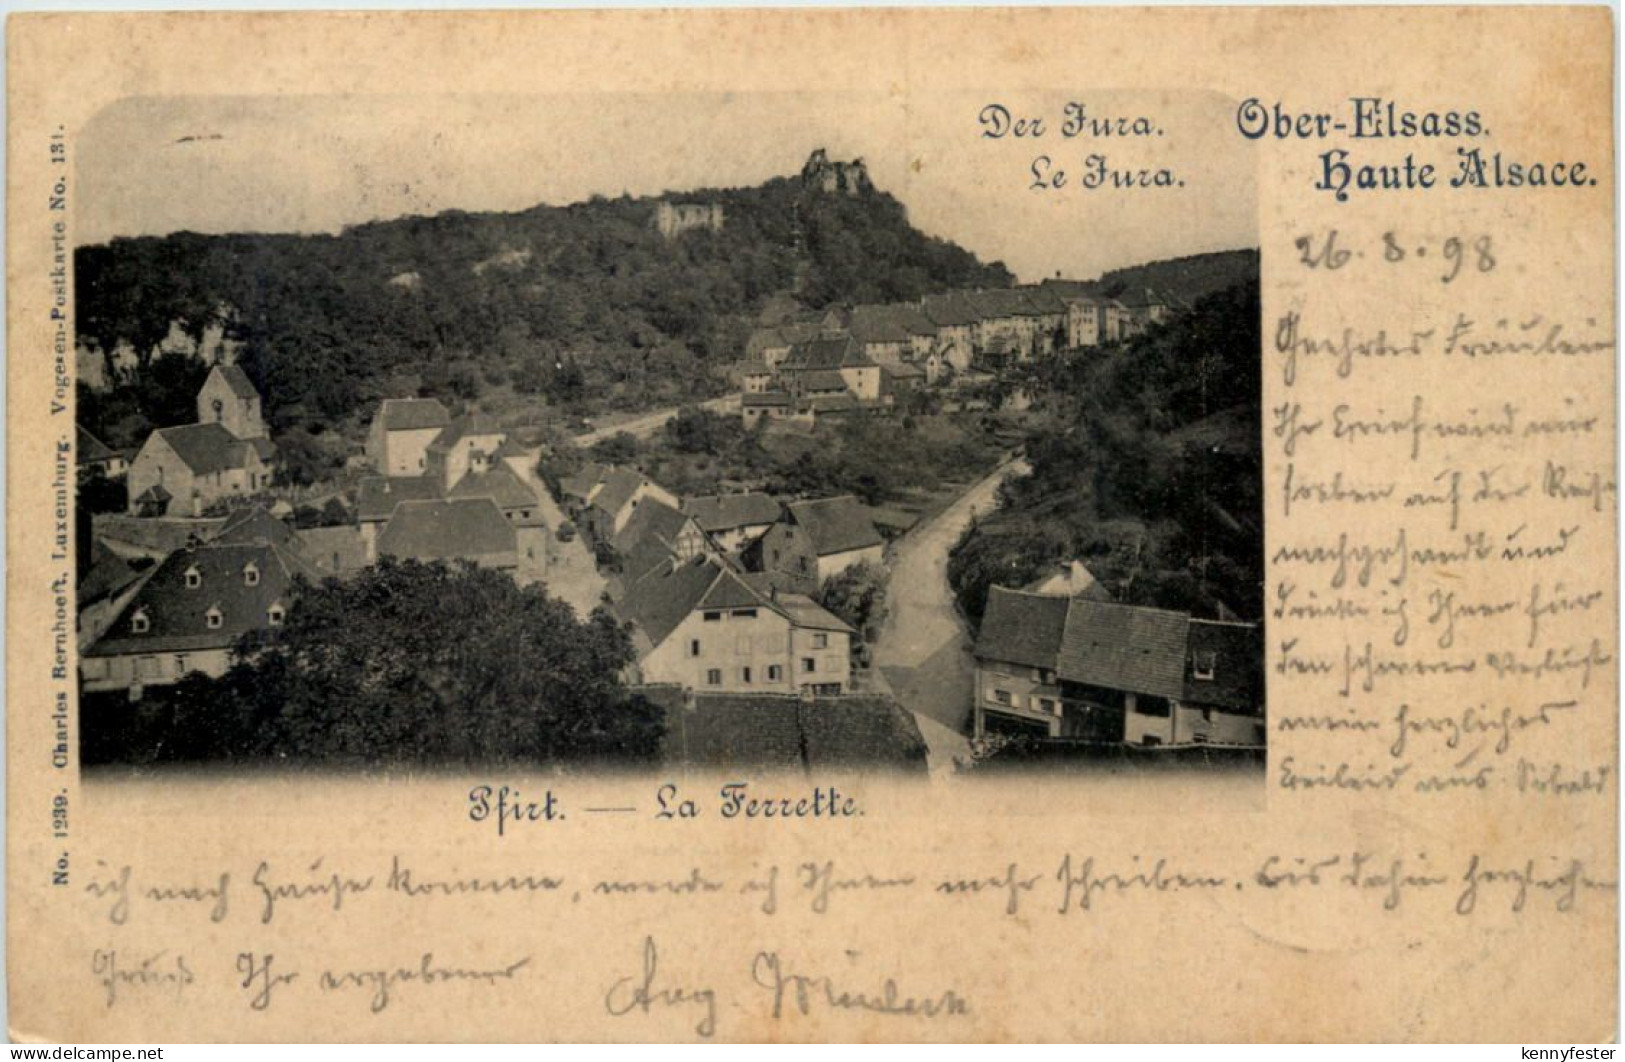 Der Jura.
Le Jura.
Ober-Elsass.
Haute Alsace.
26.8.98
Geehrtes Fräulein
Ihr Brief wird mir
soeben auf der Reise
nachgesandt und
drücke ich Ihnen für
den schweren Verlust
mein herzliches
Beileid aus. Sobald
ich nach Hause komme, werde ich Ihnen mehr schreiben. Bis dahin herzlichen
Gruß Ihr ergebener Aug.
Pfirt. — La Ferrette.
No. 1239. Charles Bernhoeft, Luxemburg. Vogesen-Postkarte No. 131.
www.delcampe.net
kennyfester